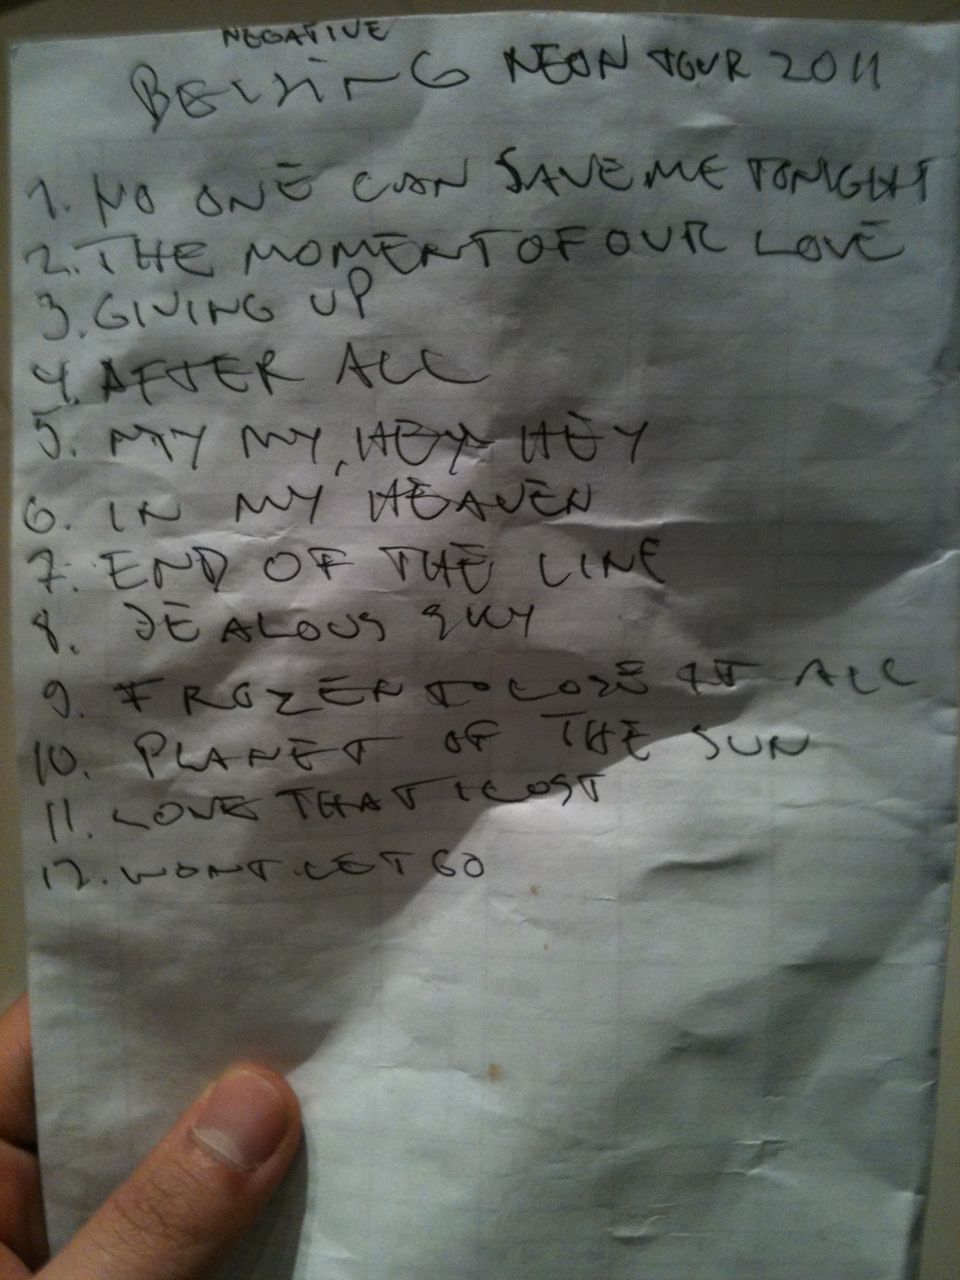 NEGATIVE
BEIJING NEON TOUR 2011
1. NO ONE CAN SAVE ME TONIGHT
2. THE MOMENT OF OUR LOVE
3. GIVING UP
4. AFTER ALL
5. MY MY, HEY HEY
6. IN MY HEAVEN
7. END OF THE LINE
8. JEALOUS SKY
9. FROZEN TO LOSE IT ALL
10. PLANET OF THE SUN
11. LOVE THAT I LOST
12. WONT LET GO